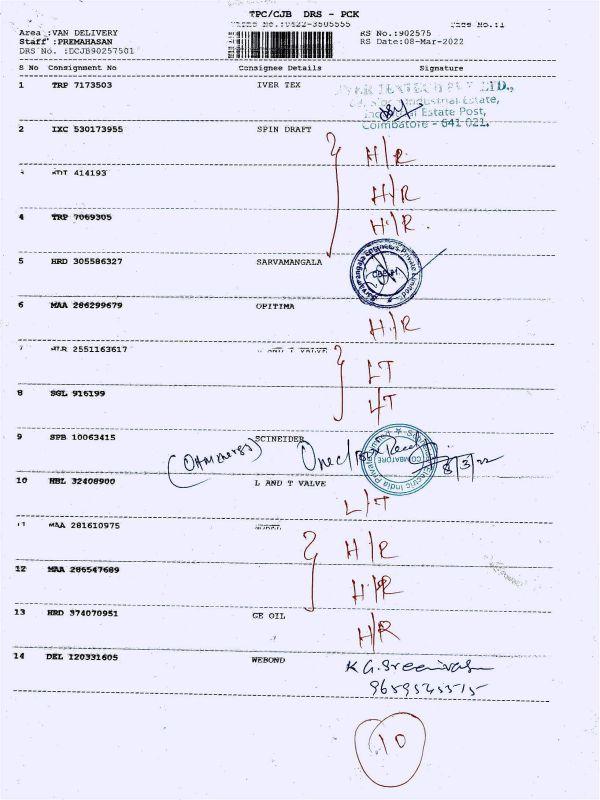 TPC/CJB DRS - PCK
Area :VAN DELIVERY
Staff :PREMAHASAN
DRS No. :DCJB90257501
RS No.:902575
RS Date:08-Mar-2022
S No Consignment No Consignee Details Signature
1 TRP 7173503 IVER TEX
Industrial Estate,
Estate Post,
Coimbatore - 641 021.
2 IXC 530173955 SPIN DRAFT
H/R
414193
H/R
4 TRP 7069305
H/R
5 HRD 305586327 SARVAMANGALA
6 MAA 286299679 OPITIMA
H/R
2551163617 AND T VALVE
LT
8 SGL 916199
LT
9 SPB 10063415 SCINEIDER
COIMBATORE
Electric India Private
8/3/22
10 HBL 32408900 L AND T VALVE
L/T
11 MAA 281610975
H/R
12 MAA 286547689
H/R
13 HRD 374070951 GE OIL
H/R
14 DEL 120331605 WEBOND
K.G.Sreenivasan
10